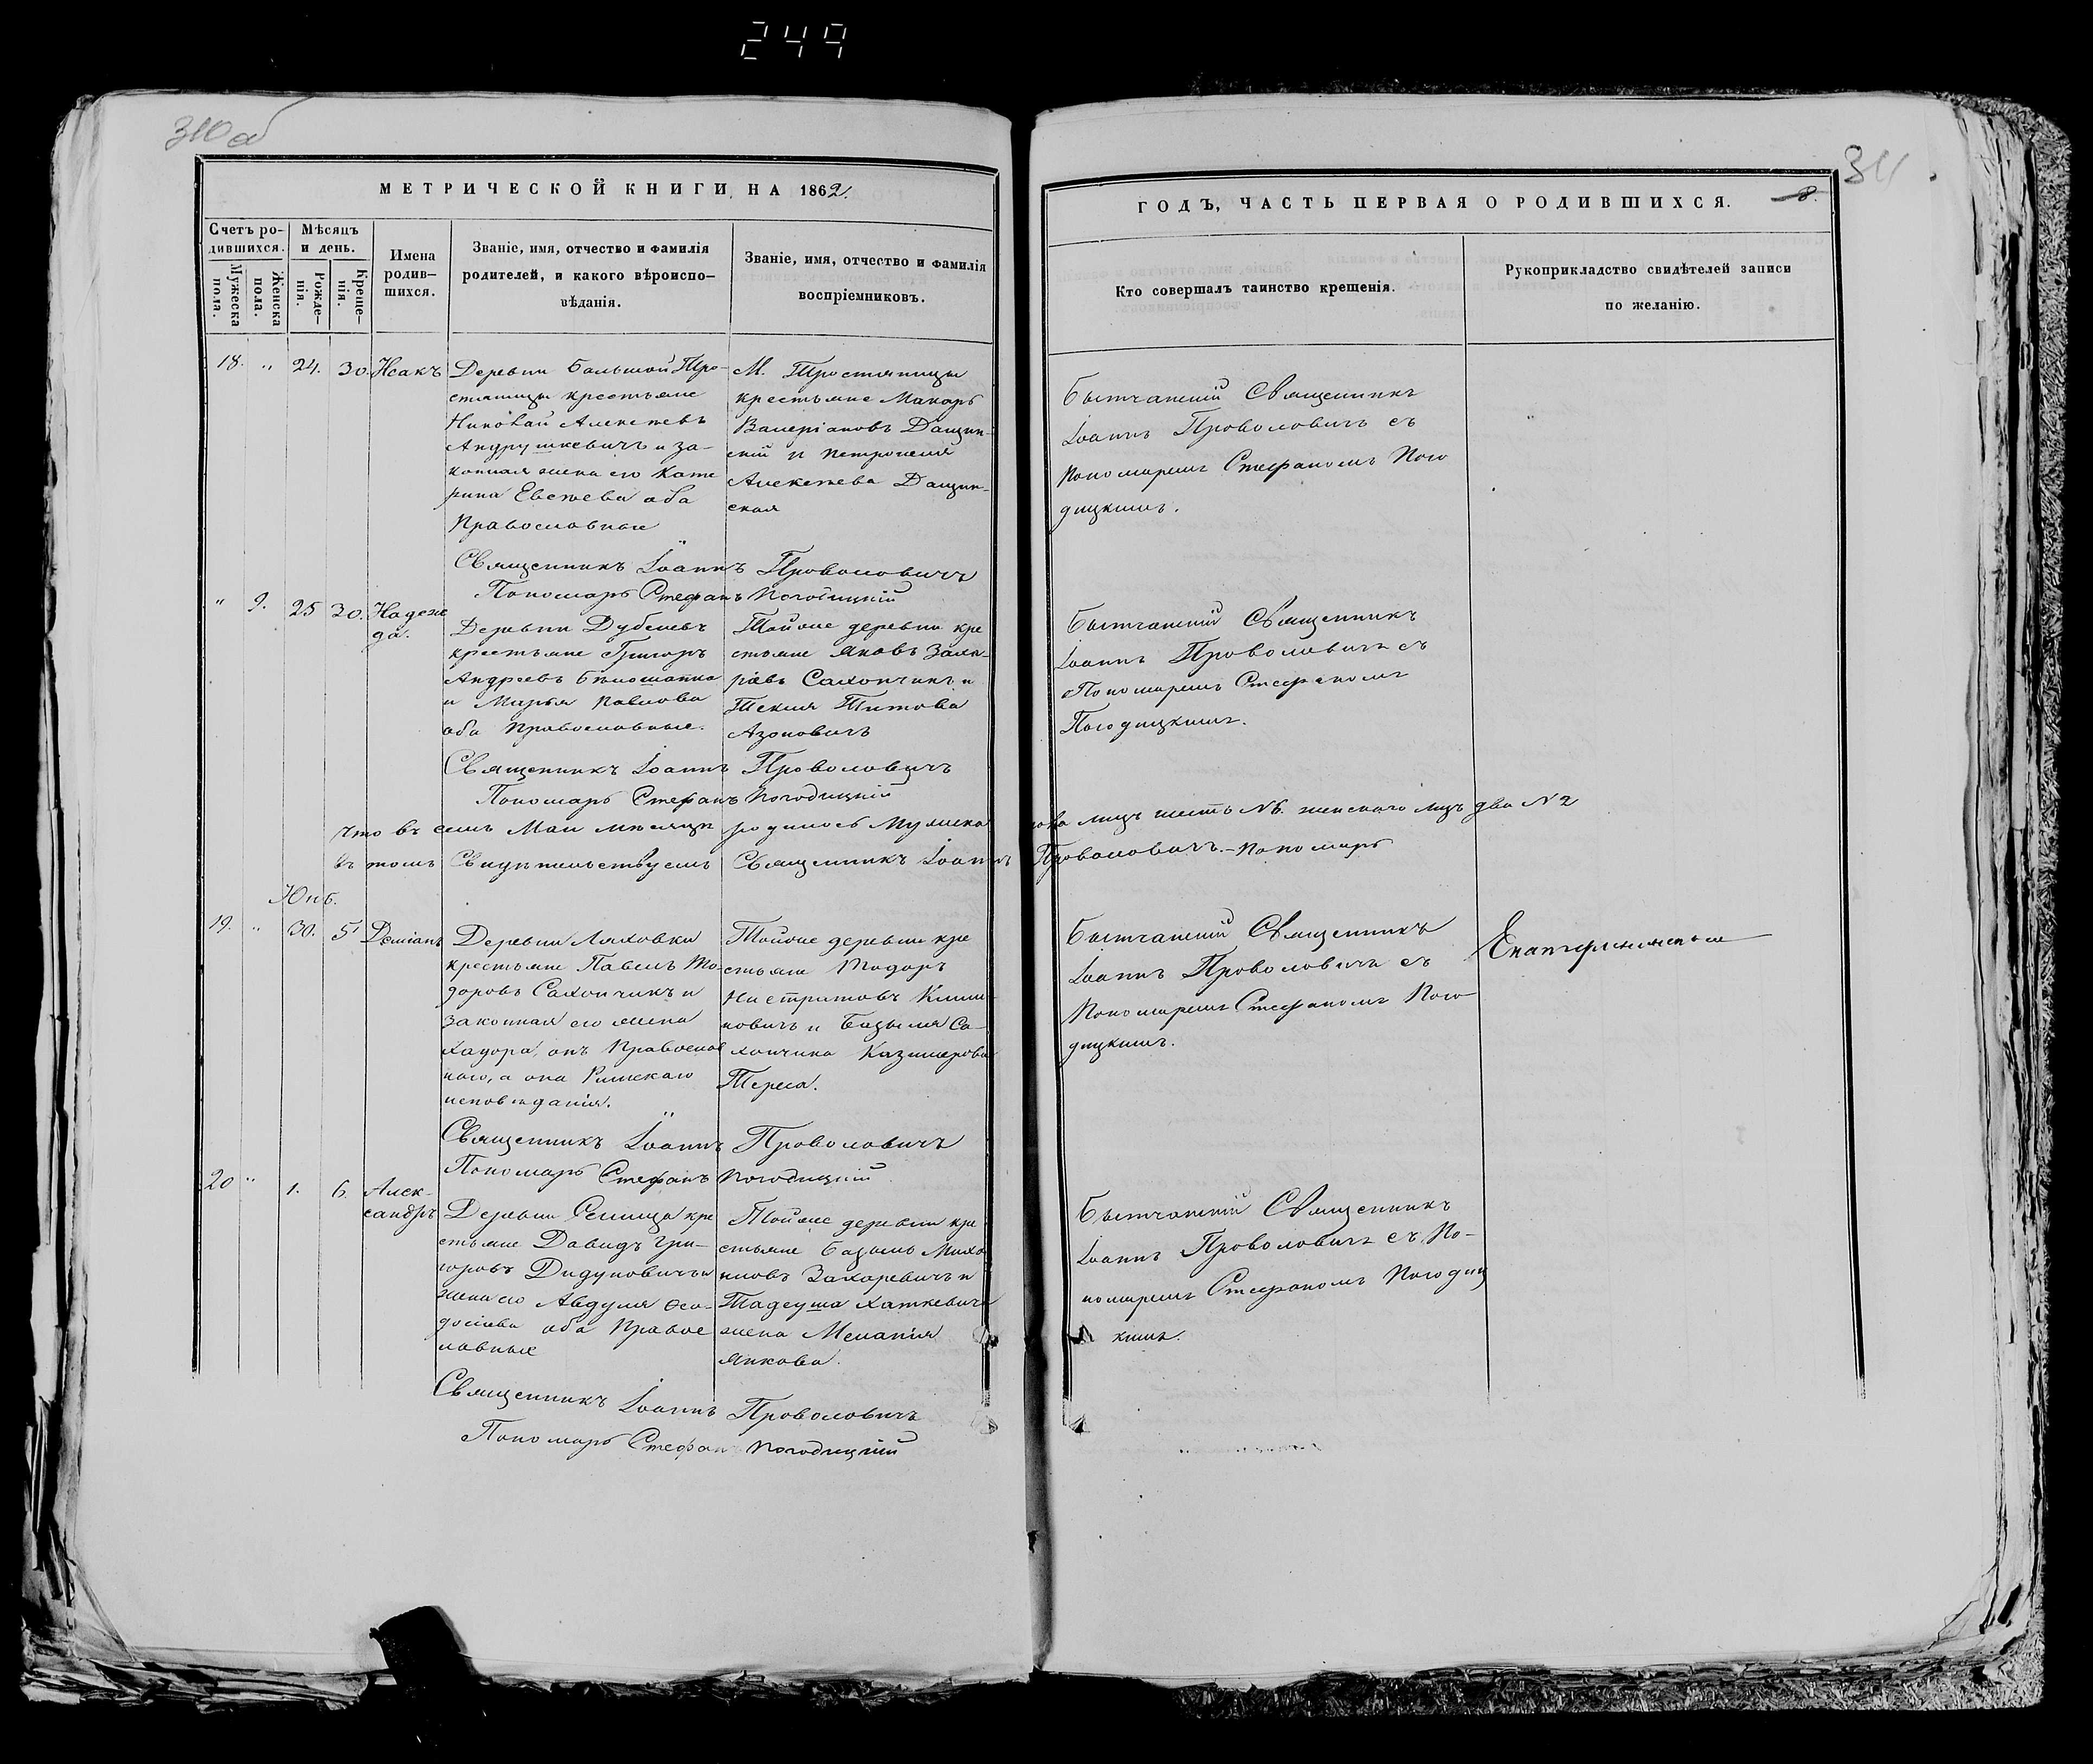 249
310 об
311
МЕТРИЧЕСКОЙ КНИГИ, НА 1862.
ГОДЪ, ЧАСТЬ ПЕРВАЯ О РОДИВШИХСЯ.
8.
Счетъ ро-
дившихся.
Мужеска
пола.
Женска
пола.
Мѣсяцъ
и день.
Рожде-
нія.
Креще-
нія.
Имена
родив-
шихся.
Званіе, имя, отчество и фамилія
родителей, и какого вѣроиспо-
вѣданія.
Званіе, имя, отчество и фамилія
воспріемниковъ.
Кто совершалъ таинство крещенія.
Рукоприкладство свидѣтелей записи
по желанію.
18. „ 24. 30. Исакъ
Деревни Большой Тро-
стяницы крестьяне
Николай Алексѣевъ
Андрушкевичъ и за-
конная жена его Кате
рина Евсѣева оба
Православные
М. Тростяницы
крестьяне Макаръ
Валеріановъ Дащин-
скій и Петронеля
Алексѣева Дащин-
ская
Бытчанскій Священникъ
Іоаннъ Проволовичъ съ
Пономаремъ Стефаномъ Пого
дицкимъ.
Священникъ Іоаннъ Проволовичъ
Пономарь Стефанъ Погодицкій
„ 9. 25 30. Надеж
да.
Деревни Дубенецъ
крестьяне Григоръ
Андреевъ Бѣлошапка
и Марья Павлова
оба Православные.
Тойже деревни кре
стьяне Яковъ Заха-
ровъ Сахончикъ и
Текля Титова
Азоновичъ
Бытчанскій Священникъ
Іоаннъ Проволовичъ съ
Пономаремъ Стефаномъ
Погодицкимъ.
Священникъ Іоаннъ Проволовичъ
Пономарь Стефанъ Погодицкій
Что въ семъ Маи мѣсяцѣ родилось Мужеска пола лицъ шесть N6. женскаго лицъ два N2
въ томъ Свидѣтельствуемъ Священникъ Іоаннъ Проволовичъ. – Пономарь
Юнь.
19. „ 30. 5 Деміанъ
Деревни Ляховки
крестьяне Павелъ То-
доровъ Сахончикъ и
законная его жена
Хадора, онъ Православ
наго, а она Римскаго
исповѣданія.
Тойже деревни кре
стьяне Тодоръ
Климо
новичъ и Базыля Са-
хончика Казимерова
Тереса.
Бытчанскій Священникъ
Іоаннъ Проволовичъ съ
Пономаремъ Стефаномъ Пого
дицкимъ.
Священникъ Іоаннъ Проволовичъ
Пономарь Стефанъ Погодицкій
20 „ 1. 6. Алек-
сандръ
Деревни Селища кре
стьяне Давидъ Гри-
горовъ Дидуновичъ и
жена его Авдуля Ѳео-
досіева оба Правос
лавные
Тойже деревни кре
стьяне Базыль Миха
иловъ Захаревичъ и
Тадеуша Хаткевича
жена Меланія
Янкова.
Бытчанскій Священникъ
Іоаннъ Проволовичъ съ По-
номаремъ Стефаномъ Погодиц
кимъ.
Священникъ Іоаннъ Проволовичъ
Пономарь Стефанъ Погодицкій